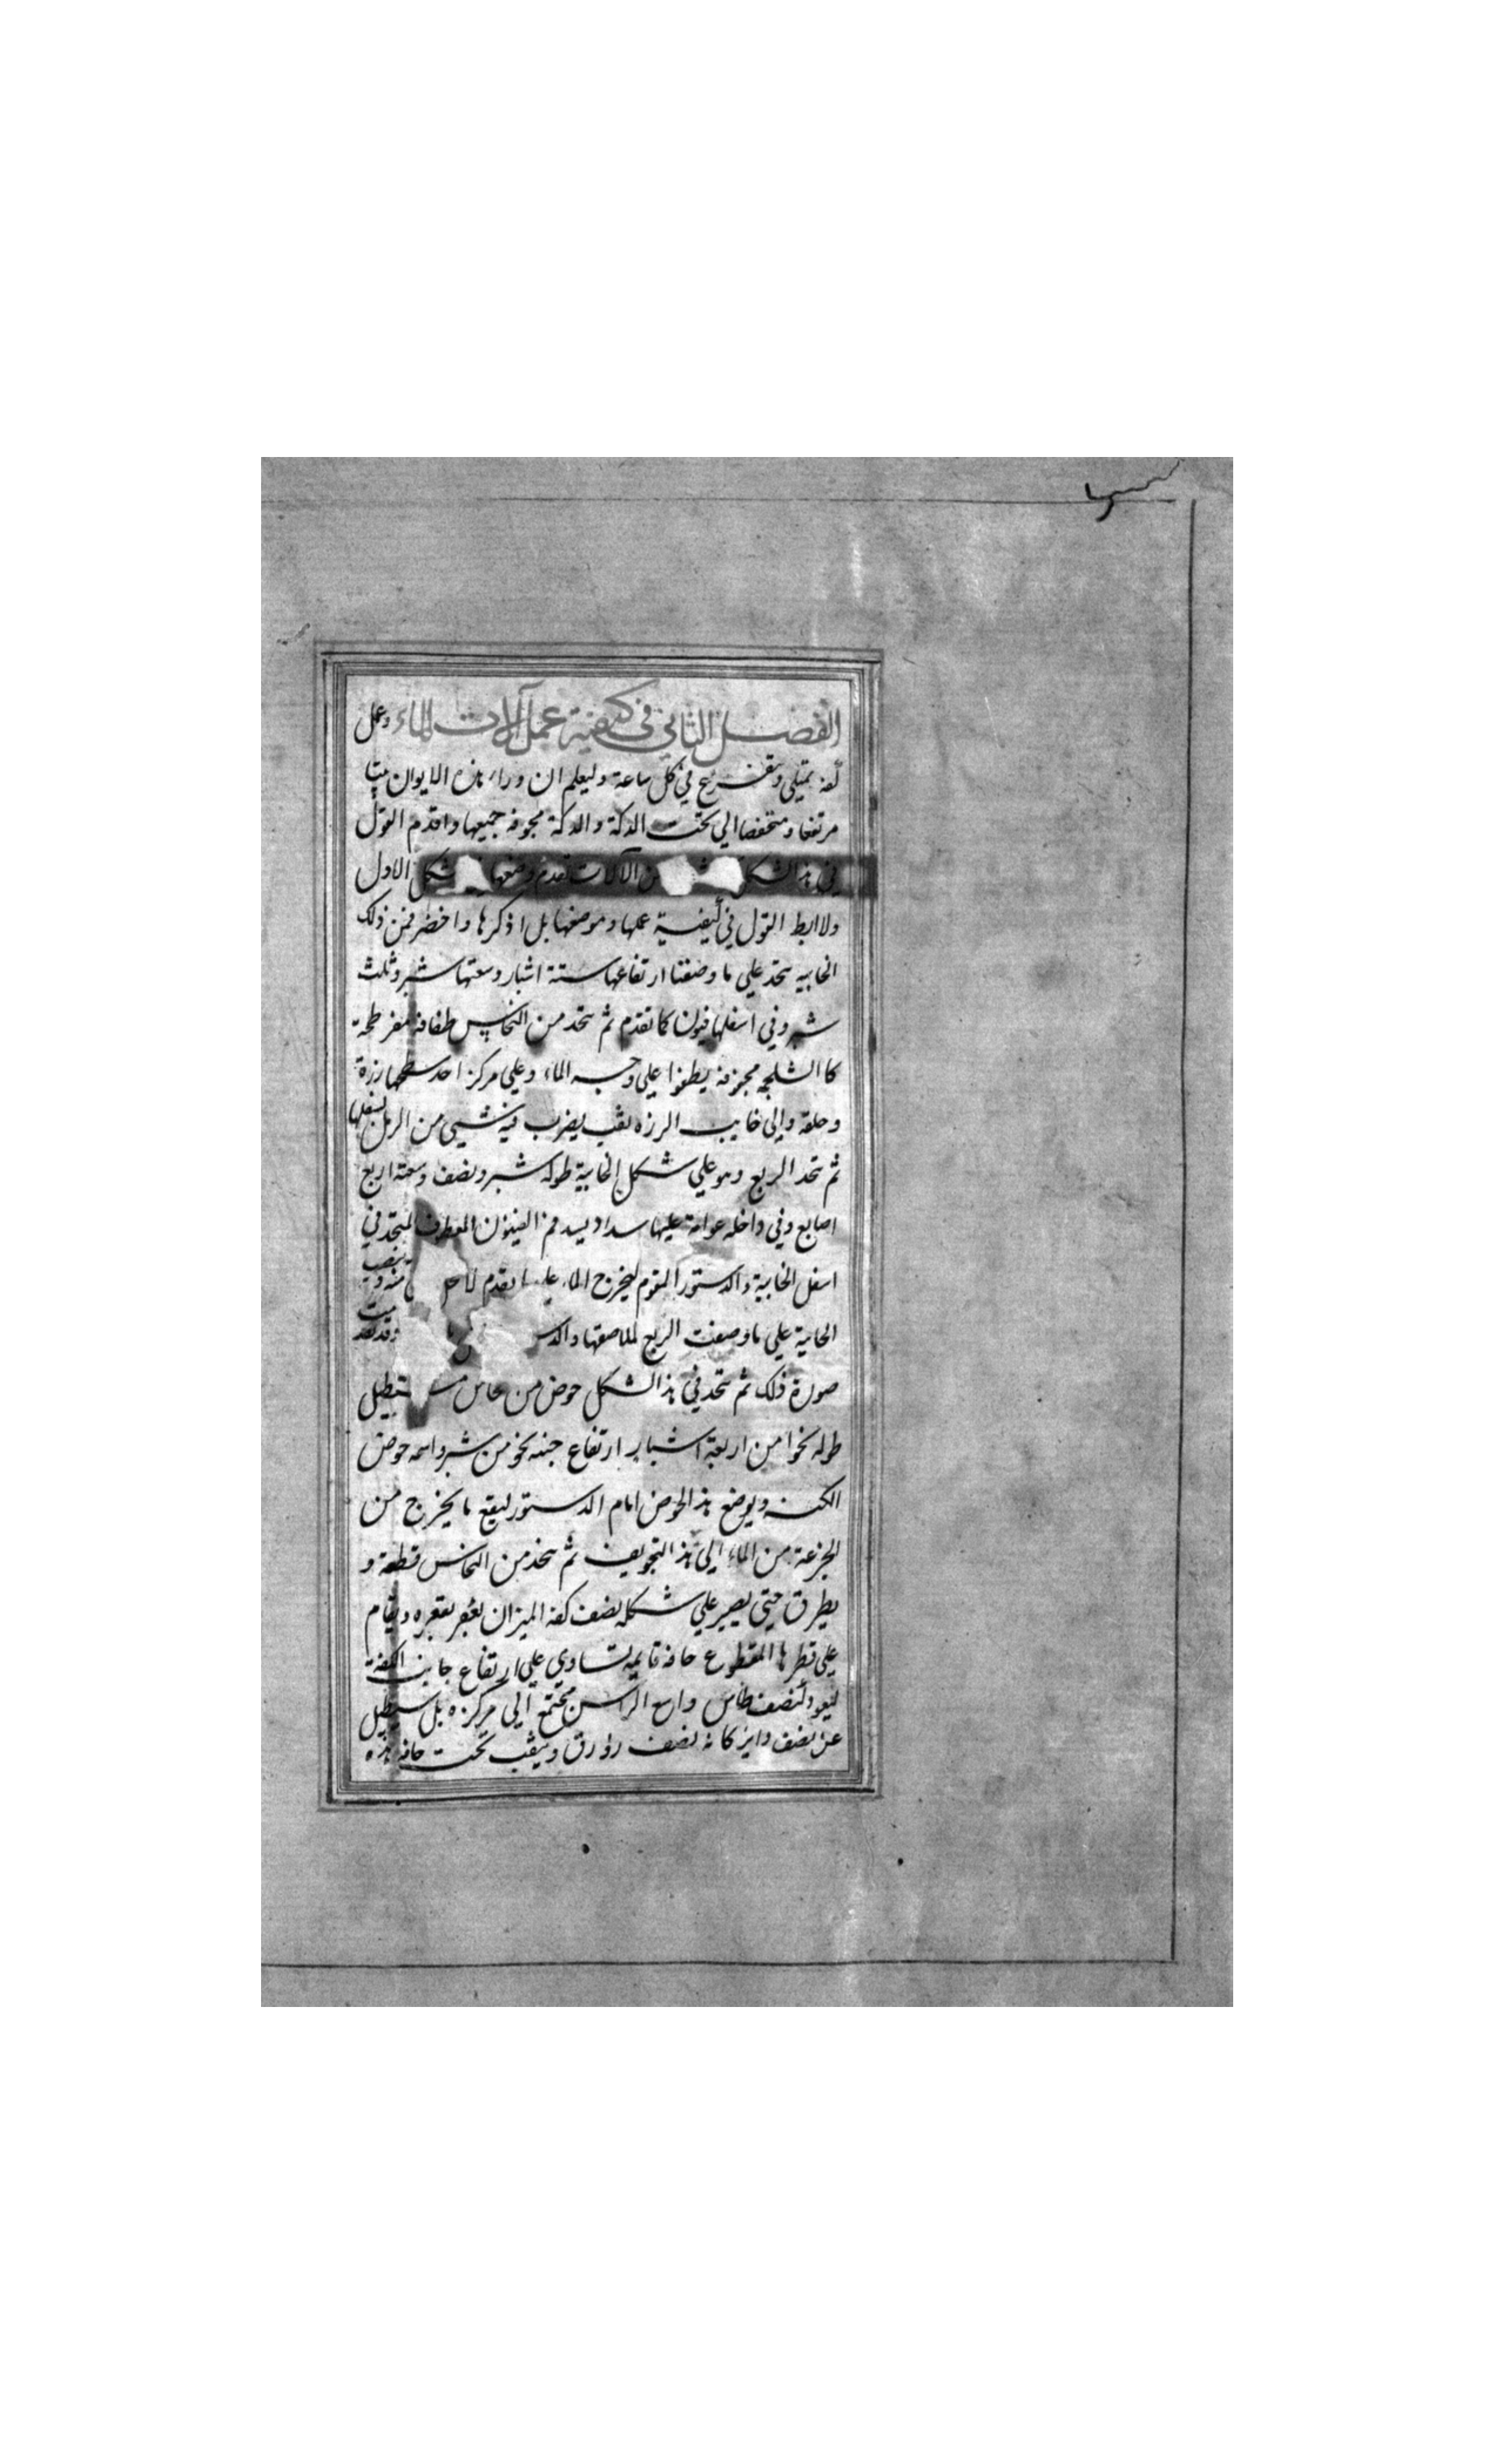 الفصل الثاني في كيفية عمل آلات الماء وعمل
كفه تمتلي وتتفرغ في كل ساعة وليعلم ان وراء هذه الايوان بيتا
مرتفعا ومنخفضا الي تحت الدكة والدكة مجوفه جميعها واقدم القول
في هذا الشكل الآلات تقدم وصفها شكل الاول
ولا ابط القول في كيفية عملها وموضعها بل اذكرها واختصر فمن ذلك
الخابيه تتخذ علي ما وصفنا ارتفاعها ستة اشبار وسعتها شبر وثلث
شبر وفي اسفلها فيون كما تقدم ثم تتخذ من النحاس طفافه مفرطحة
كالشلجمه مجوفه يطفوا علي وجه الماء وعلي مركز احد سطحها رزة
وحلقة والي جانب الرزه ثقب يضرب فيه شيي من الرمل ليثقلها
ثم تتخذ الربع وهو علي شكل الخابية طوله شبر ونصف وسعته اربع
اصابع وفي داخله عوامة عليها سداد يسد فم الفيون المعطوف المتخذ في
اسفل الخابية والدستور المقوم ليخرج الماء علي ما تقدم لاجل منه وتنصب
الخابية علي ما وصفت الربع لملاصقها والدس وقد تقدمت
صورة ذلك ثم تتخذ في هذا الشكل حوض من نحاس مستطيل
طوله نحوا من اربعة اشبار ارتفاع جنبه نحو من شبر واسمه حوض
الكفه ويوضع هذا الحوض امام الدستور ليقع ما يخرج من
الجزعة من الماء الي هذا التجويف ثم تتخذ من النحاس قطعة و
يطرق حتي يصير علي شكل نصف كفه الميزان بقعره ويقام
علي قطرها المقطوع حافه قايمه تساوي علي ارتفاع جانب الكفة
ليعود كنصف طاس واسع الراس مجتمع الي مركزه بل مستطيل
عن نصف دايره كانه نصف زورق ويثقب تحت حافه هذه